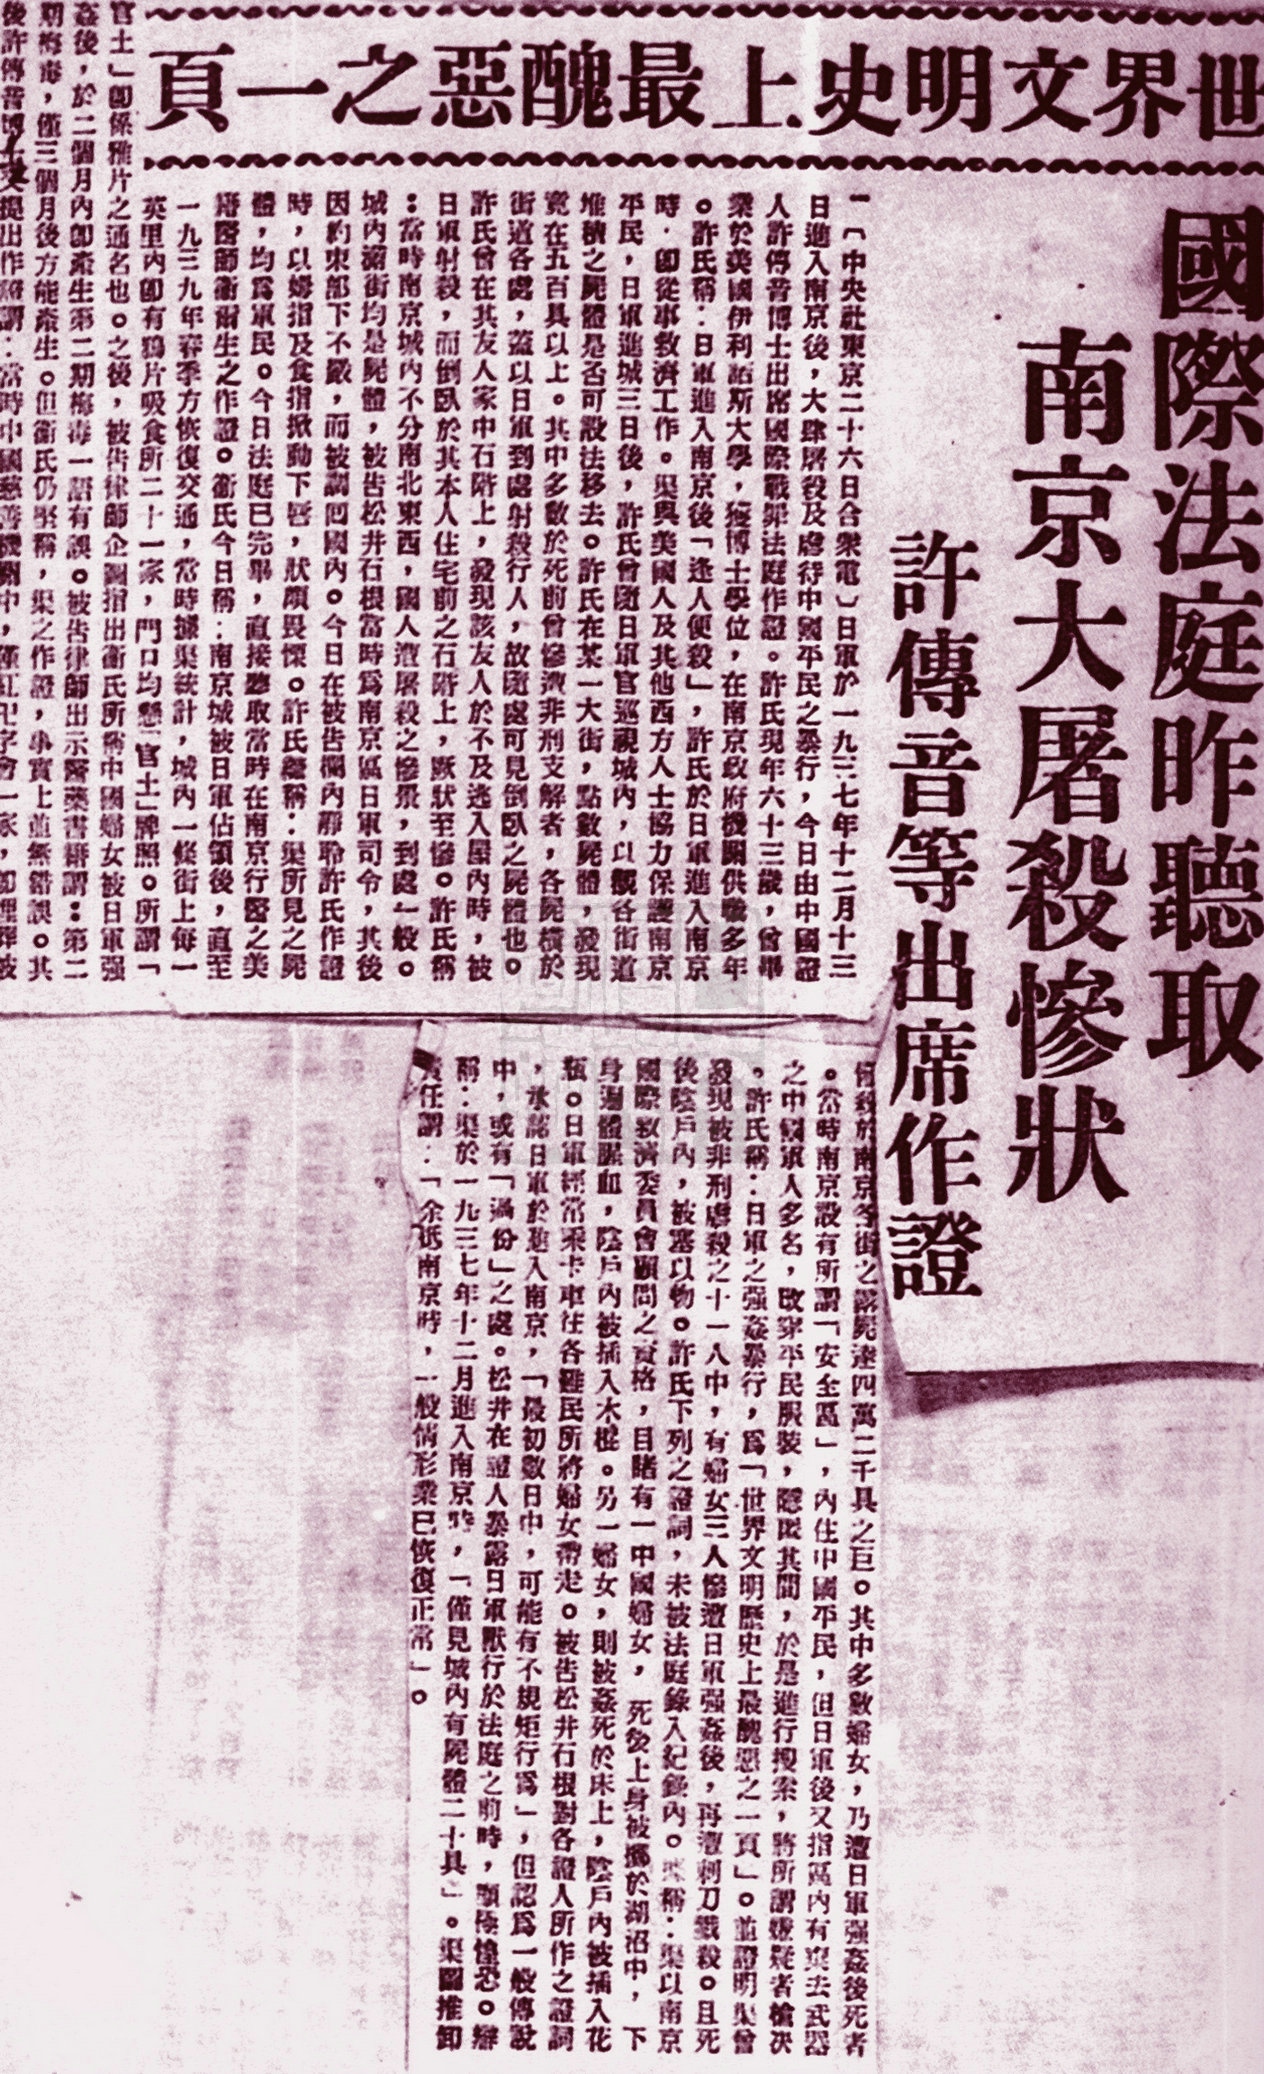 世界文明史上最醜惡之一頁
國際法庭昨聽取
南京大屠殺慘狀
許傳音等出席作證
〔中央社東京二十六日合衆電〕日軍於一九三七年十二月十三
日進入南京後，大肆屠殺及虐待中國平民之暴行，今日由中國證
人許傳音博士出席國際戰罪法庭作證。許氏現年六十三歲，曾畢
業於美國伊利諾斯大學，獲博士學位，在南京政府機關供職多年
。許氏稱：日軍進入南京後「逢人便殺」，許氏於日軍進入南京
時，卽從事救濟工作。渠與美國人及其他西方人士協力保護南京
平民，日軍進城三日後，許氏曾隨日軍官巡視城內，以觀各街道
堆積之屍體是否可設法移去。許氏在某一大街，點數屍體，發現
竟在五百具以上。其中多數於死前曾慘遭非刑支解者，各屍橫於
街道各處，蓋以日軍到處射殺行人，故隨處可見倒臥之屍體也。
許氏曾在其友人家中石階上，發現該友人於不及逃入屋內時，被
日軍射殺，而倒臥於其本人住宅前之石階上，厥狀至慘。許氏稱
：當時南京城內不分南北東西，國人遭屠殺之慘景，到處一般。
城內滿街均是屍體，被告松井石根當時爲南京區日軍司令，其後
因約束部下不嚴，而被調回國內。今日在被告欄內靜聆許氏作證
時，以姆指及食指掀動下唇，狀頗畏慄。許氏繼稱：渠所見之屍
體，均爲軍民。今日法庭已完畢，直接聽取當時在南京行醫之美
籍醫師衞爾生之作證。衞氏今日稱：南京城被日軍佔領後，直至
一九三九年春季方恢復交通，當時據渠統計，城內一條街上每一
英里內卽有鴉片吸食所二十一家，門口均懸「官土」牌照。所謂「
官土」卽係雅片之通名也。之後，被告律師企圖指出衞氏所稱中國婦女被日軍强
姦後，於二個月內卽產生第二期梅毒一語有誤。被告律師出示醫藥書籍謂：第二
期梅毒，僅三個月後方能產生。但衞氏仍堅稱，渠之作證，事實上並無錯誤。其
後許傳音博士又提出作證謂：當時中國慈善機關中，僅紅卍字會一家，卽埋葬被
殺於南京各街之露屍達四萬二千具之巨。其中多數婦女，乃遭日軍强姦後死者
。當時南京設有所謂「安全區」，內住中國平民，但日軍後又指區內有棄去武器
之中國軍人多名，改穿平民服裝，隱匿其間，於是進行搜索，將所謂嫌疑者槍決
。許氏稱：日軍之强姦暴行，爲「世界文明歷史上最醜惡之一頁」。並證明渠曾
發現被非刑虐殺之十一人中，有婦女三人慘遭日軍强姦後，再遭刺刀戳殺。且死
後陰戶內，被塞以物。許氏下列之證詞，未被法庭錄入紀錄內。稱：渠以南京
國際救濟委員會顧問之資格，目睹有一中國婦女，死後上身被擲於湖沼中，下
身遍體腥血，陰戶內被插入木棍。另一婦女，則被姦死於床上，陰戶內被插入花
瓶。日軍經常乘卡車往各難民所將婦女帶走。被告松井石根對各證人所作之證詞
，承認日軍於進入南京，「最初數日中，可能有不規矩行爲」，但認爲一般傳說
中，或有「過份」之處。松井在證人暴露日軍獸行於法庭之前時，頗極惶恐。辯
稱：渠於一九三七年十二月進入南京時，「僅見城內有屍體二十具」。渠圖推卸
責任謂：「余抵南京時，一般情形業已恢復正常」。